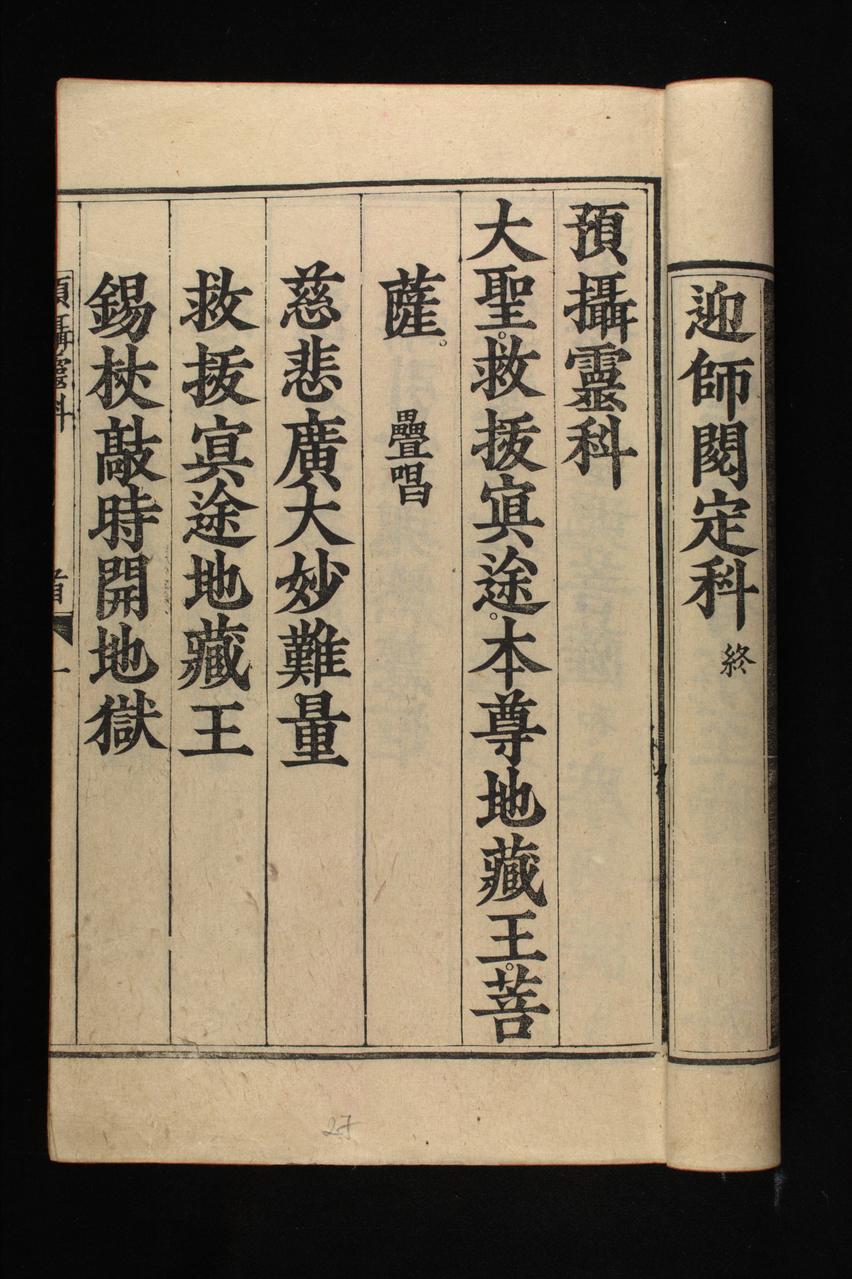 迎師閱定科 終
預攝靈科
大聖。救拔寘途。本尊地藏王。菩
薩。 疊唱
慈悲廣大妙難量
救拔寘途地藏王
錫杖敲時開地獄
預攝靈科 首 一
27